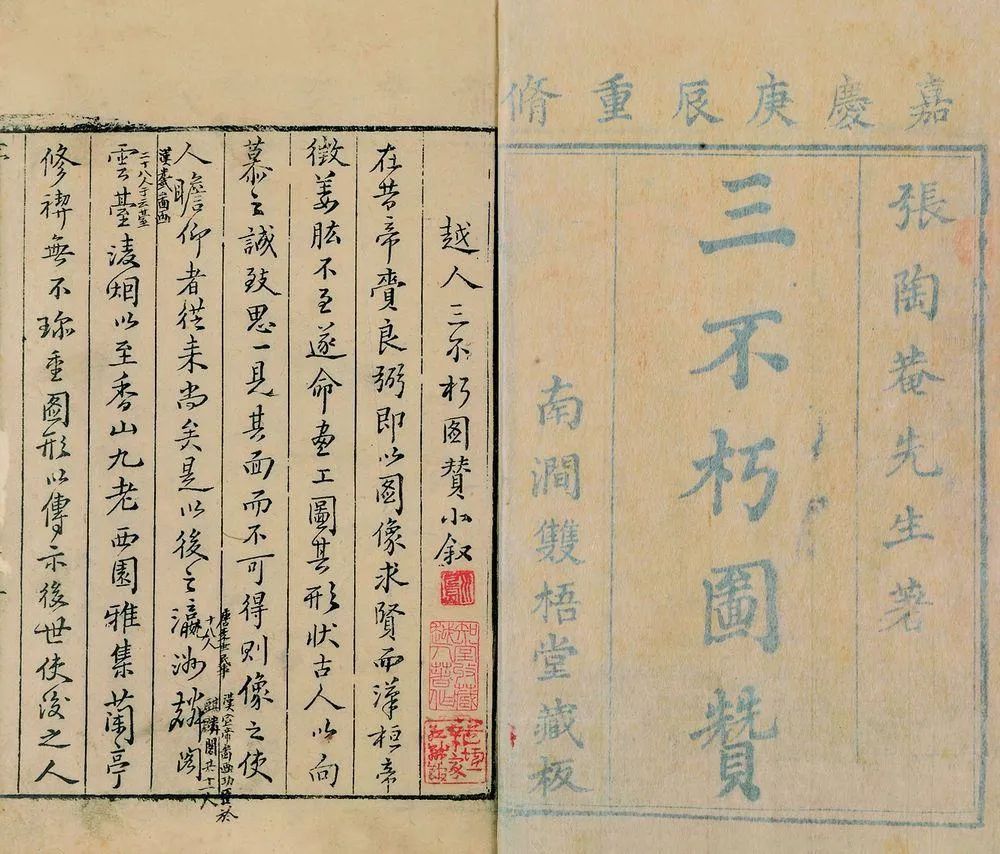 嘉慶庚辰重脩
張陶菴先生著
三不朽圖贊
南澗雙梧堂藏板
越人三不朽圖贊小叙
知堂收藏越人著作
在昔帝賚良弼即以圖像求賢而漢桓帝
徵姜肱不至遂命畫工圖其形狀古人以向
慕之誠致思一見其面而不可得則像之使
人瞻仰者從来尚矣是以後之瀛洲麟閣
十八人
漢宣帝畵画功臣於
麒麟閣共十一人
漢武畵画
二十八人于云臺
雲臺凌烟以至香山九老西園雅集蘭亭
修禊無不珍重圖形以傳示後世使後之人